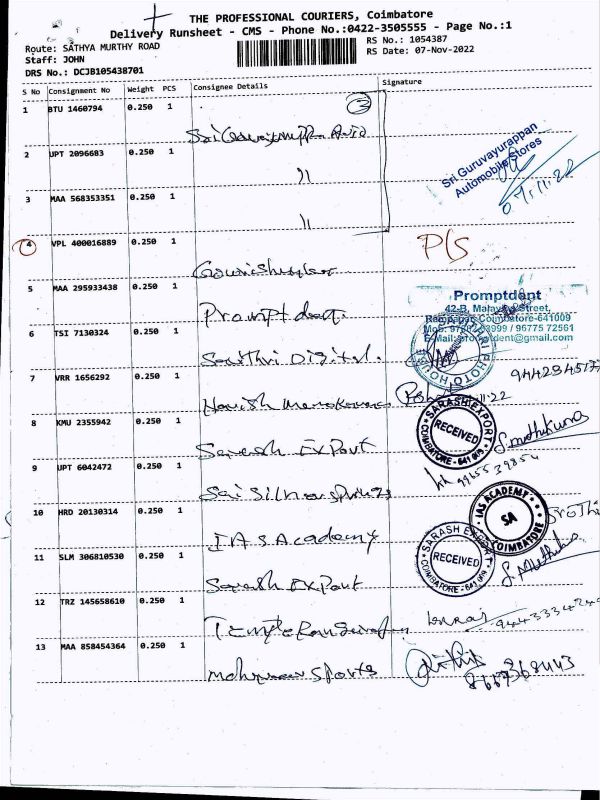 THE PROFESSIONAL COURIERS, Coimbatore
Delivery Runsheet - CMS - Phone No.:0422-3505555 - Page No.:1
Route: SATHYA MURTHY ROAD
RS No.: 1054387
Staff: JOHN
RS Date: 07-Nov-2022
DRS No.: DCJB105438701
S No Consignment No Weight PCS Consignee Details Signature
1 BTU 1460794 0.250 1 3
Sri Auto
2 UPT 2096683 0.250 1 Sri Guruvayurappan
Automobile Stores
07.11.22
"
3 MAA 568353351 0.250 1
"
4 VPL 400016889 0.250 1 P/S
5 MAA 295933438 0.250 1
Prompt
Promptdent
42-B, Malaviya Street,
Ramnagar, Coimbatore-641009
E-Mail: promptdent@gmail.com
6 TSI 7130324 0.250 1
Digital.
PHOTO HOUSE
7 VRR 1656292 0.250 1
Harish
8 KMU 2355942 0.250 1
Saresh Export
SARASH EXPORT
RECEIVED
COIMBATORE - 641 019
9 UPT 6042472 0.250 1
Sai Silver
9965539854
10 HRD 20130314 0.250 1
IAS Academy
IAS ACADEMY
SA
COIMBATORE
11 SLM 306810530 0.250 1
Saresh Export
SARASH EXPORT
RECEIVED
COIMBATORE - 641 019
12 TRZ 145658610 0.250 1
Temple
13 MAA 858454364 0.250 1
Sports
8667368443